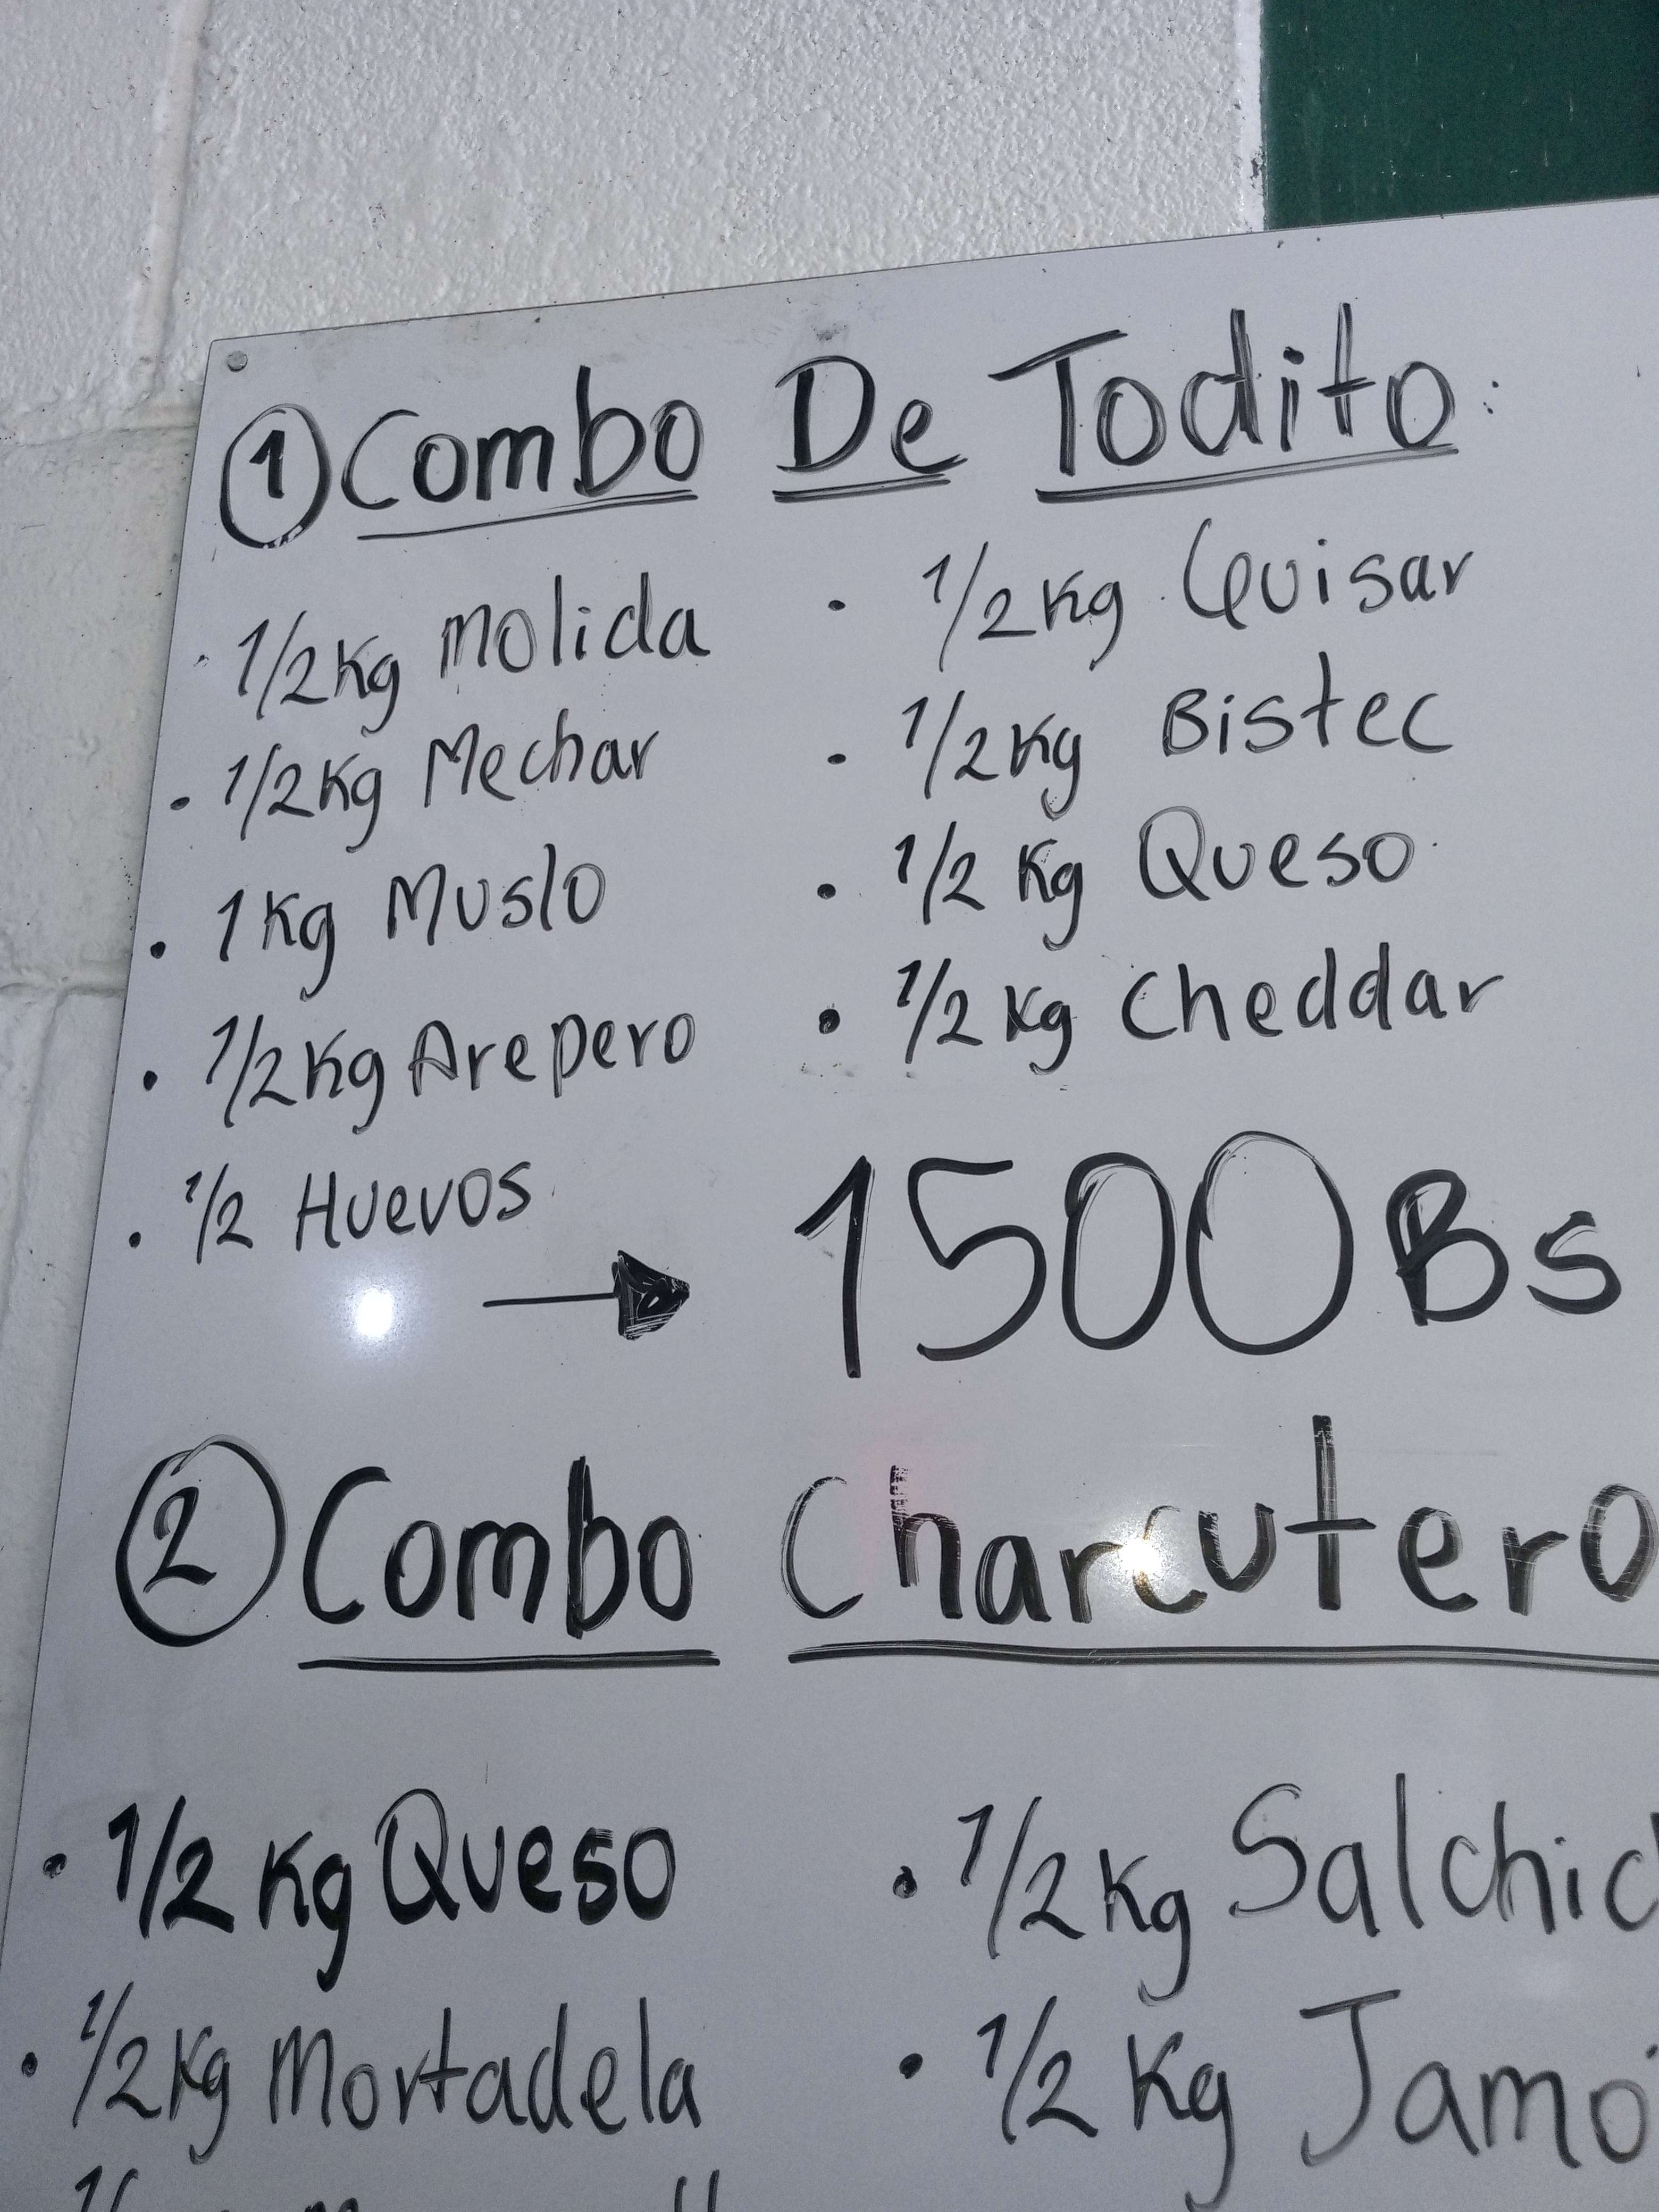 ① Combo De Todito:
· 1/2Kg Molida
· 1/2Kg Mechar
· 1Kg Muslo
· 1/2Kg Arepero
· 1/2 Huevos
· 1/2Kg Guisar
· 1/2Kg Bistec
· 1/2 Kg Queso
· 1/2 Kg Cheddar
→ 1500Bs
② Combo Charcutero
· 1/2 Kg Queso
· 1/2Kg Mortadela
· 1/2Kg Salchic
· 1/2 Kg Jamó